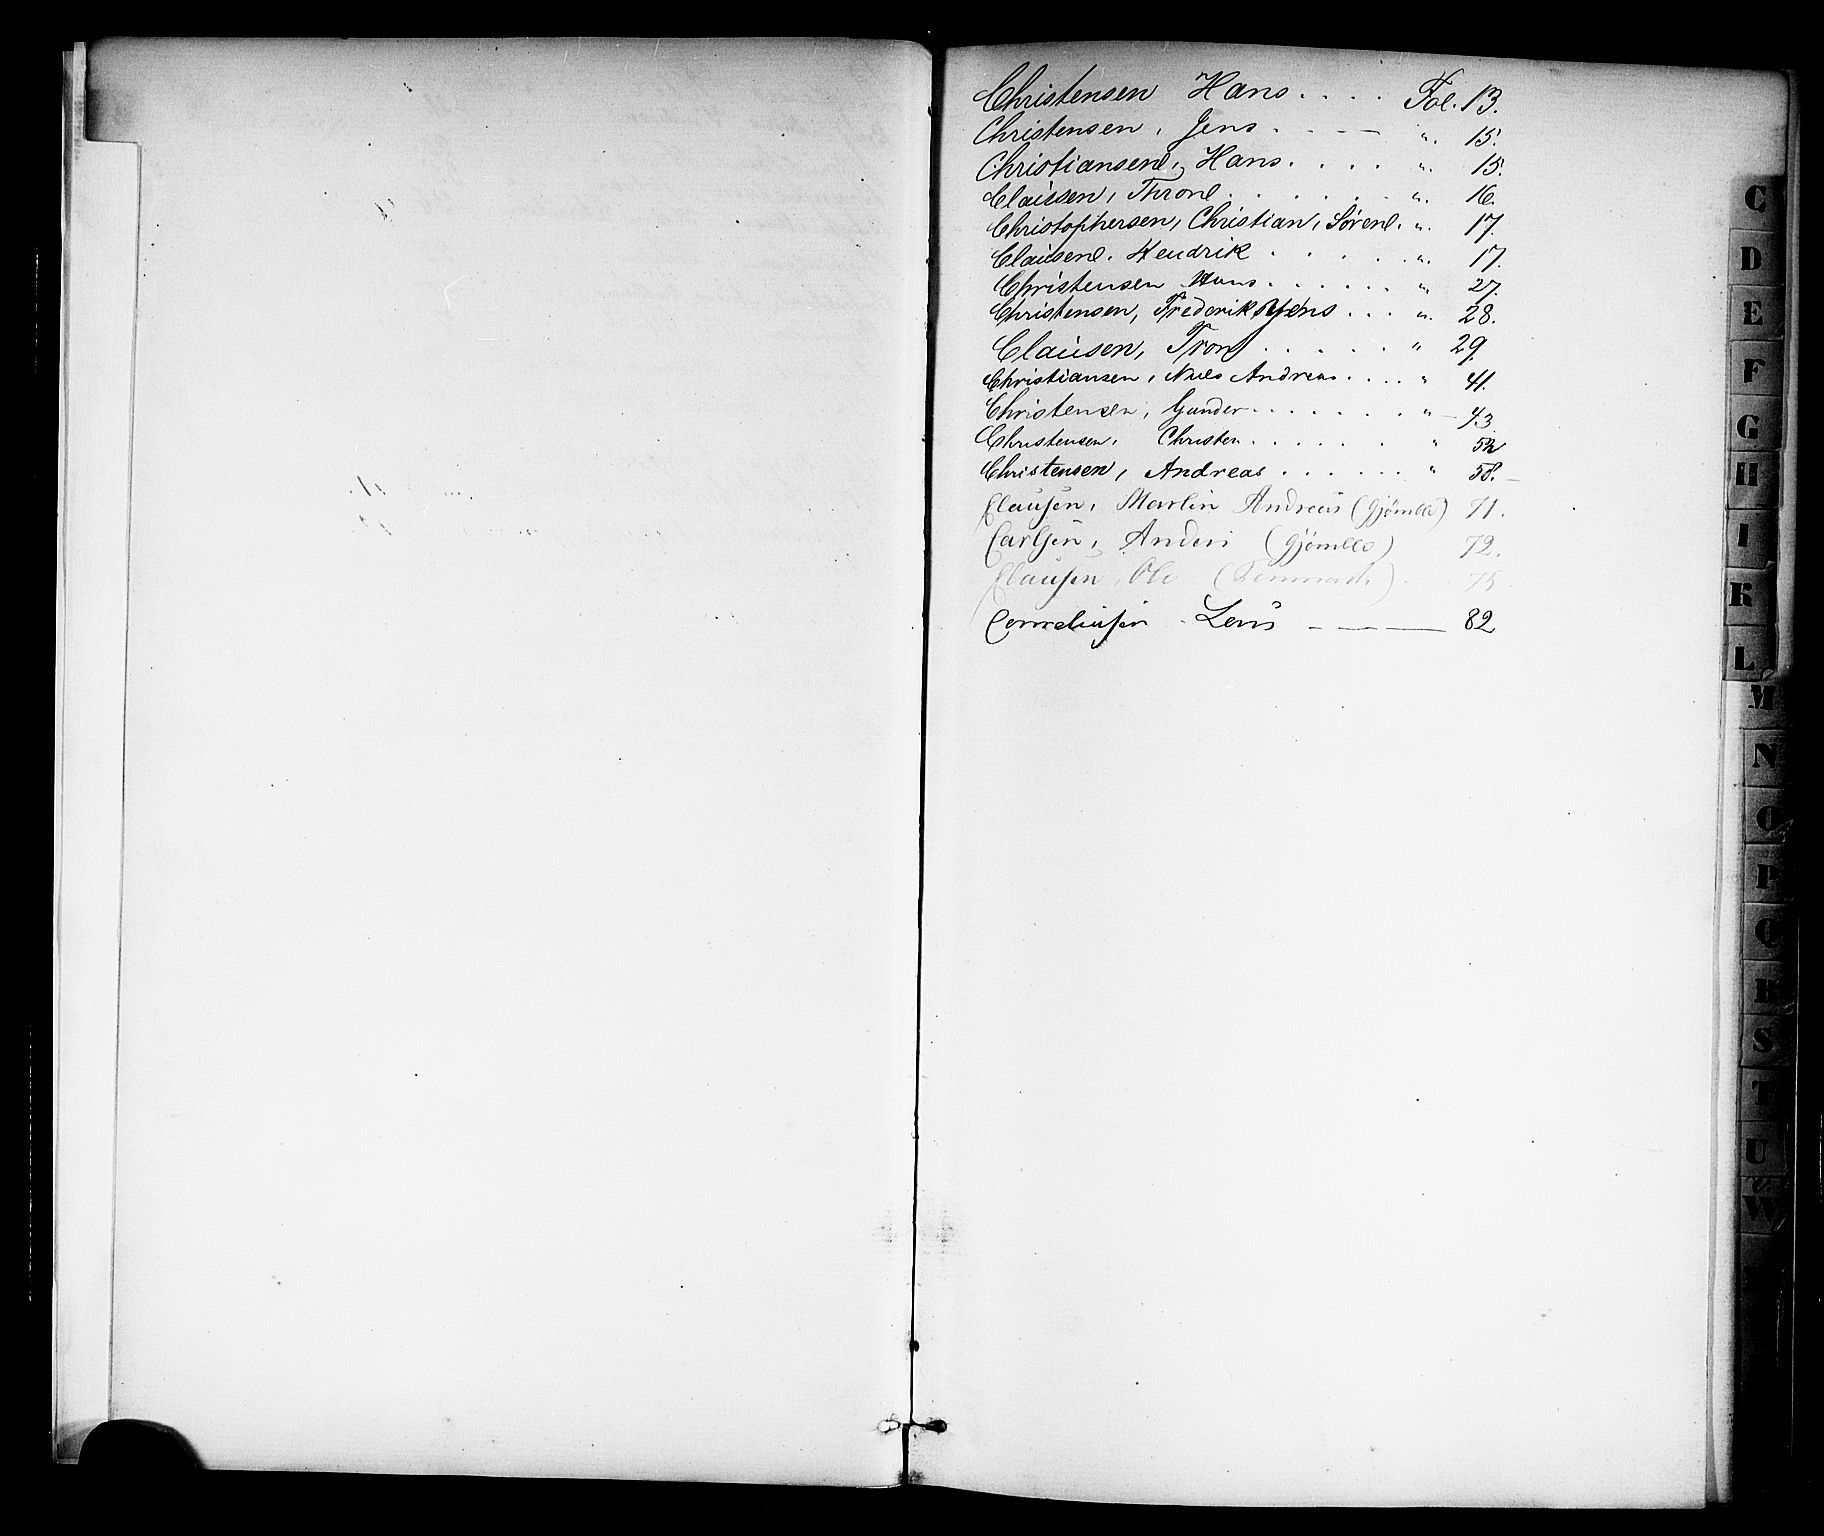 Christensen Hans .... Fol. 13.
Christensen, Jens . . . — ". 15.
Christiansen, Hans. . . . ". 15.
Claussen, Throne . . . . . . ". 16.
Christophersen, Christian, Søren. ". 17.
Clausen. Hendrik . . . . . ". 17.
Christensen Hans . . . . . . " 27.
Christensen, Frederik Jens . . . ". 28.
Clausen, Tron . . . . . " 29.
Christiansen, Niels Andreas . . . . " 41.
Christensen, Gunder . . . . . . . " 43
Christensen, Christen . . . . . . "
Christensen, Andreas . . . . . . " 58.
Clausen, Martin Andreas (Gjømle) 71.
Carlsen, Anders (Gjømle) 72.
Clausen, Ole 75.
Corneliusen 82
C
D
E
F
G
H
I
K
L
M
N
O
P
Q
R
S
T
U
V
W